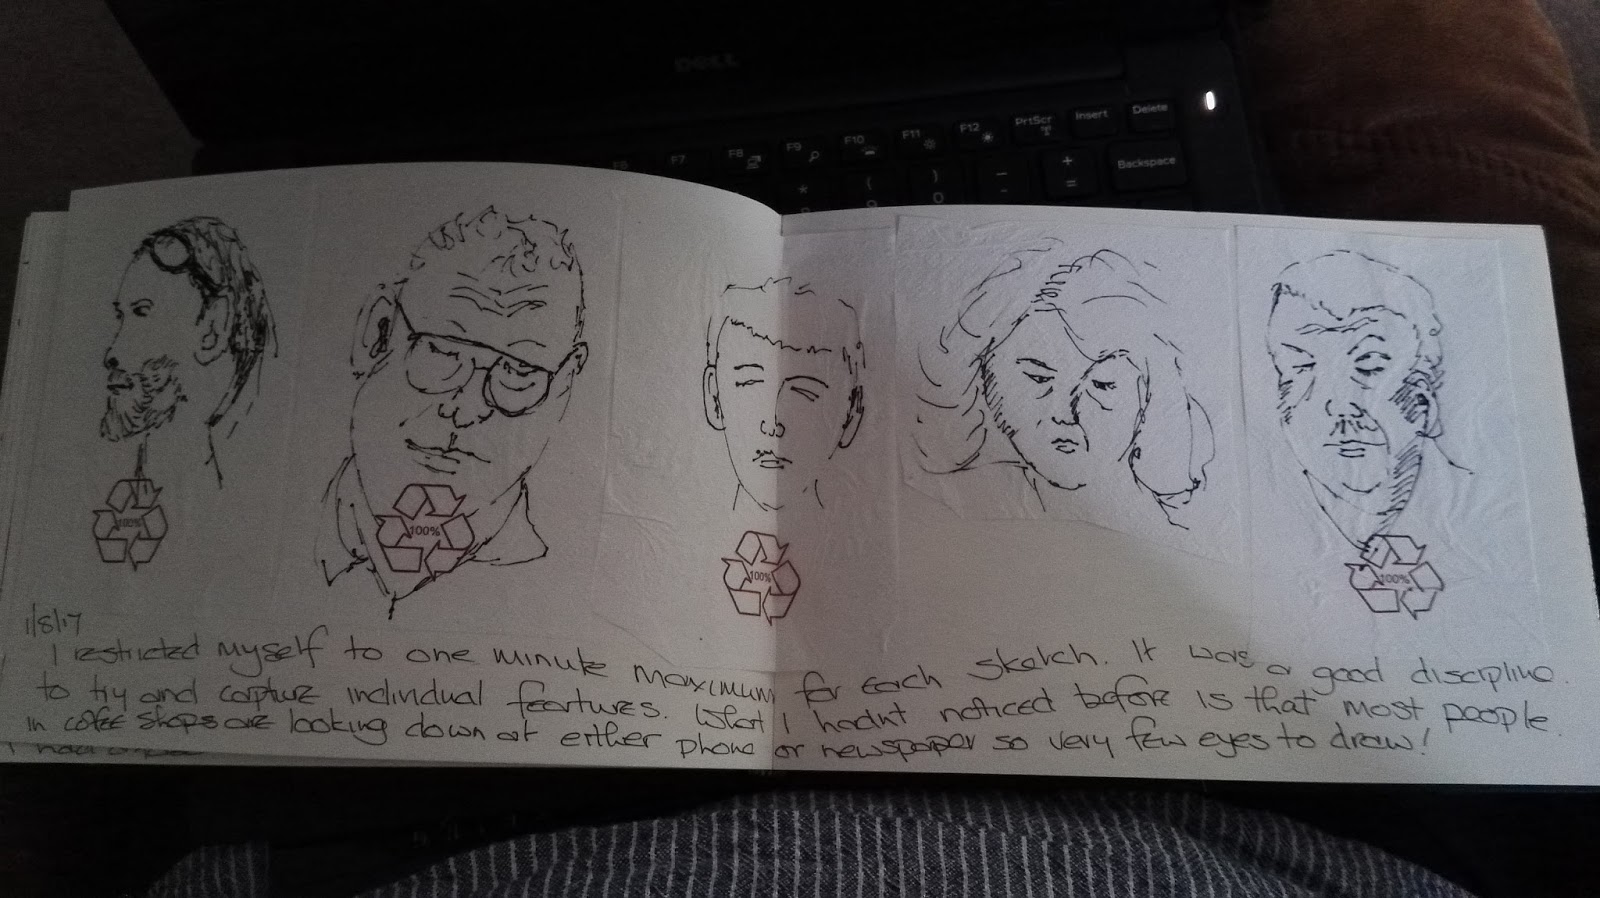 DELL
F6 F7 F8 F9 F10 F11 F12 PrtScr Insert Delete
* ( ) - + Backspace
9 0 - =
100%
100%
100%
100%
1/8/17
I restricted myself to one minute maximum for each sketch. It was a good discipline.
to try and capture individual features. What I hadn't noticed before is that most people.
in coffee shops are looking down at either phone or newspaper so very few eyes to draw!